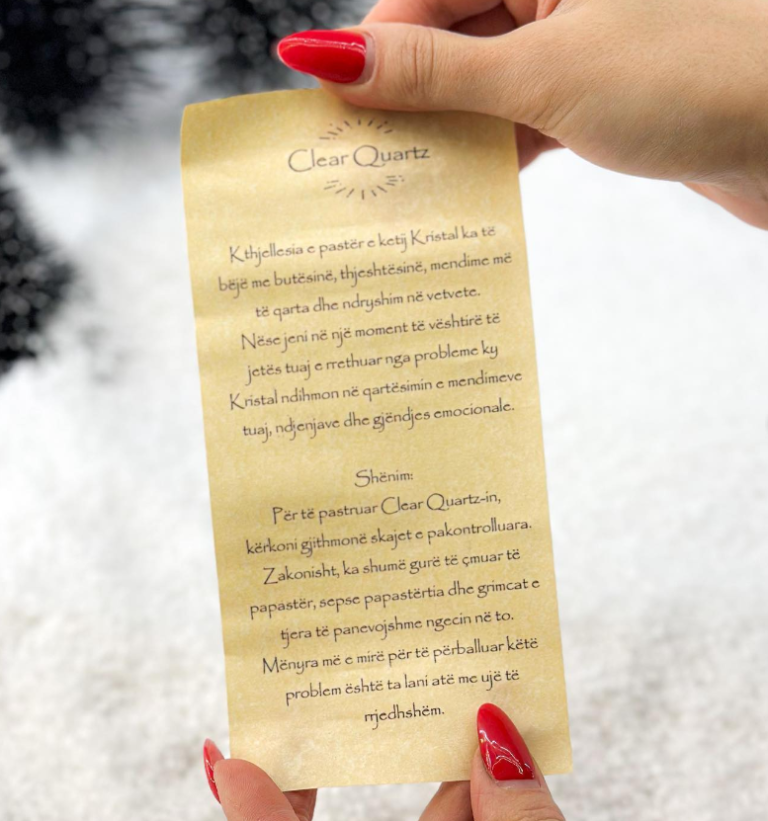 Clear Quartz
Kthjellesia e pastër e ketij Kristal ka të
bëjë me butësinë, thjeshtësinë, mendime më
të qarta dhe ndryshim në vetvete.
Nëse jeni në një moment të vështirë të
jetës tuaj e rrethuar nga probleme ky
Kristal ndihmon në qartësimin e mendimeve
tuaj, ndjenjave dhe gjëndjes emocionale.
Shënim:
Për të pastruar Clear Quartz-in,
kërkoni gjithmonë skajet e pakontrolluara.
Zakonisht, ka shumë gurë të çmuar të
papastër, sepse papastërtia dhe grimcat e
tjera të panevojshme ngecin në to.
Mënyra më e mirë për të përballuar këtë
problem është ta lani atë me ujë të
rrjedhshëm.